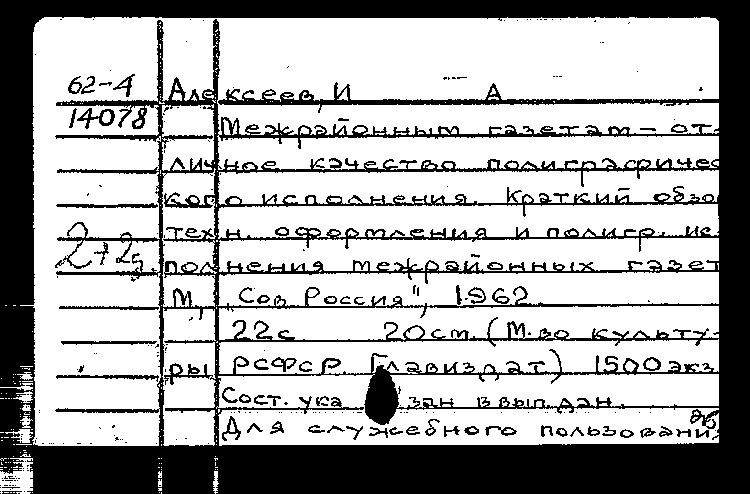 62-4 Алексеев, И А
14078 Межрайонным газетам - от-
личное качество полиграфичес
кого исполнения. Краткий обзо
техн. оформления и полигр. ис-
2+2д. полнения межрайонных газет
М., "Сов Россия", 1962.
22с 20см. (М-во культу-
ры РСФСР. Главиздат) 1500 экз
Сост. ука зан в вып. дан.
Для служебного пользовани